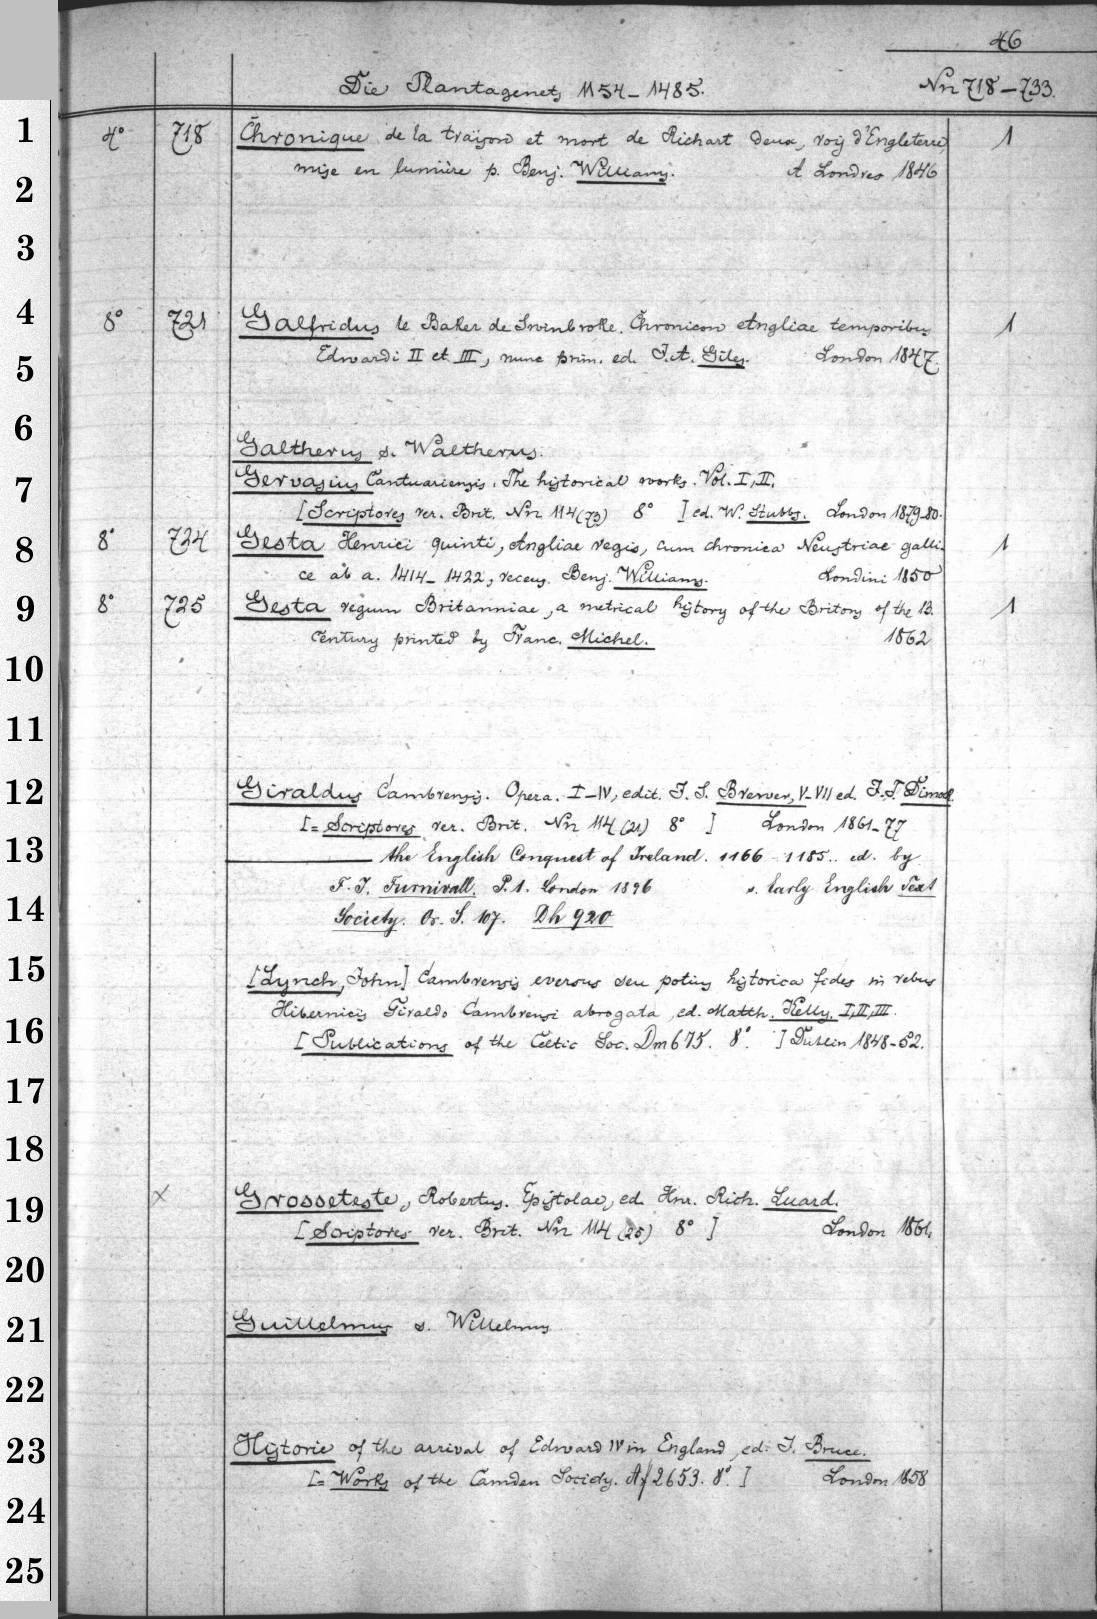 46
Die Plantagenets 1154–1485. Nn 718–733.
1 4° 718 Chronique de la traïson et mort de Richart Deux, roy d'Engleterre, 1
2 mise en lumière p. Benj. Williams. A Londres 1846
3
4 8° 721 Galfridus le Baker de Swinbroke. Chronicon Angliae temporibus 1
5 Edwardi II et III, nunc prim. ed. J. A. Giles. London 1847.
6 Galtherus s. Waltherus.
7 Gervasius Cantuariensis. The historical works. Vol. I, II.
[Scriptores rer. Brit. Nn 114 (73) 8° ] ed. W. Stubbs. London 1879–80.
8 8° 724 Gesta Henrici quinti, Angliae regis, cum chronica Neustriae galli- 1
ce ab a. 1414–1422, recens. Benj. Williams. Londini 1850
9 8° 725 Gesta regum Britanniae, a metrical history of the Britons of the 13. 1
century printed by Franc. Michel. 1862
10
11
12 Giraldus Cambrensis. Opera. I–IV, edit. J. S. Brewer, V–VII ed. J. F. Dimock.
[= Scriptores rer. Brit. Nn 114 (21) 8° ] London 1861–77
13 ——— the English Conquest of Ireland. 1166–1185.. ed. by
F. J. Furnivall. P. 1. London 1896 s. Early English Text
14 Society. Or. S. 107. Dh 920
15 [Lynch, John] Cambrensis eversus seu potius historica fides in rebus
Hibernicis Giraldo Cambrensi abrogata, ed. Matth. Kelly. I, II, III.
16 [Publications of the Celtic Soc. Dm 675. 8°. ] Dublin 1848–52.
17
18
19 x Grosseteste, Robertus. Epistolae, ed. Hnr. Rich. Luard.
[Scriptores rer. Brit. Nn 114 (25) 8° ] London 1861.
20
21 Guillelmus s. Willelmus
22
23 Historie of the arrival of Edward IV in England, ed. J. Bruce.
[= Works of the Camden Society. Af 2653. 8°. ] London 1858
24
25